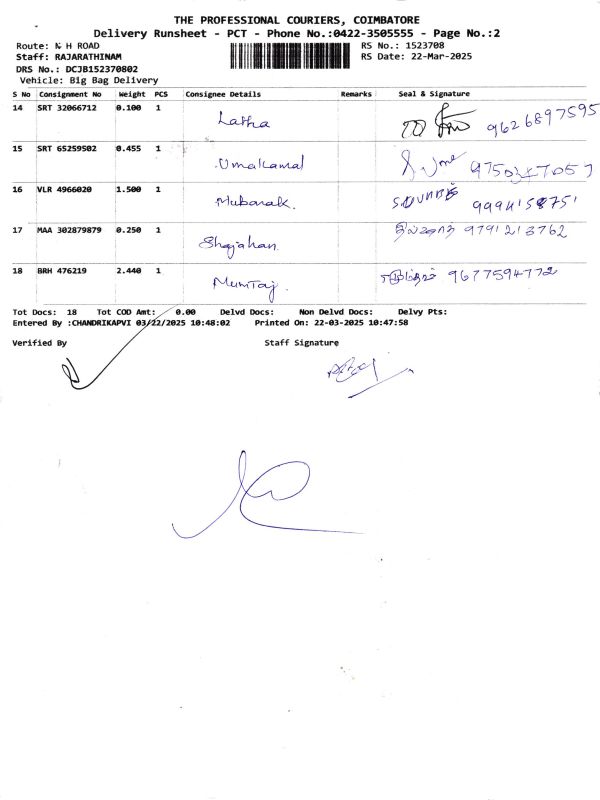 THE PROFESSIONAL COURIERS, COIMBATORE
Delivery Runsheet - PCT - Phone No.:0422-3505555 - Page No.:2
Route: N H ROAD RS No.: 1523708
Staff: RAJARATHINAM RS Date: 22-Mar-2025
DRS No.: DCJB152370802
Vehicle: Big Bag Delivery
S No Consignment No Weight PCS Consignee Details Remarks Seal & Signature
14 SRT 32066712 0.100 1 Latha 9626897595
15 SRT 65259502 0.455 1 Umakamal
16 VLR 4966020 1.500 1 Mubarak.
17 MAA 302879879 0.250 1 Shajahan. 9791213762
18 BRH 476219 2.440 1 Mumtaj. 9677594772
Tot Docs: 18 Tot COD Amt: 0.00 Delvd Docs: Non Delvd Docs: Delvy Pts:
Entered By :CHANDRIKAPVI 03/22/2025 10:48:02 Printed On: 22-03-2025 10:47:58
Verified By Staff Signature